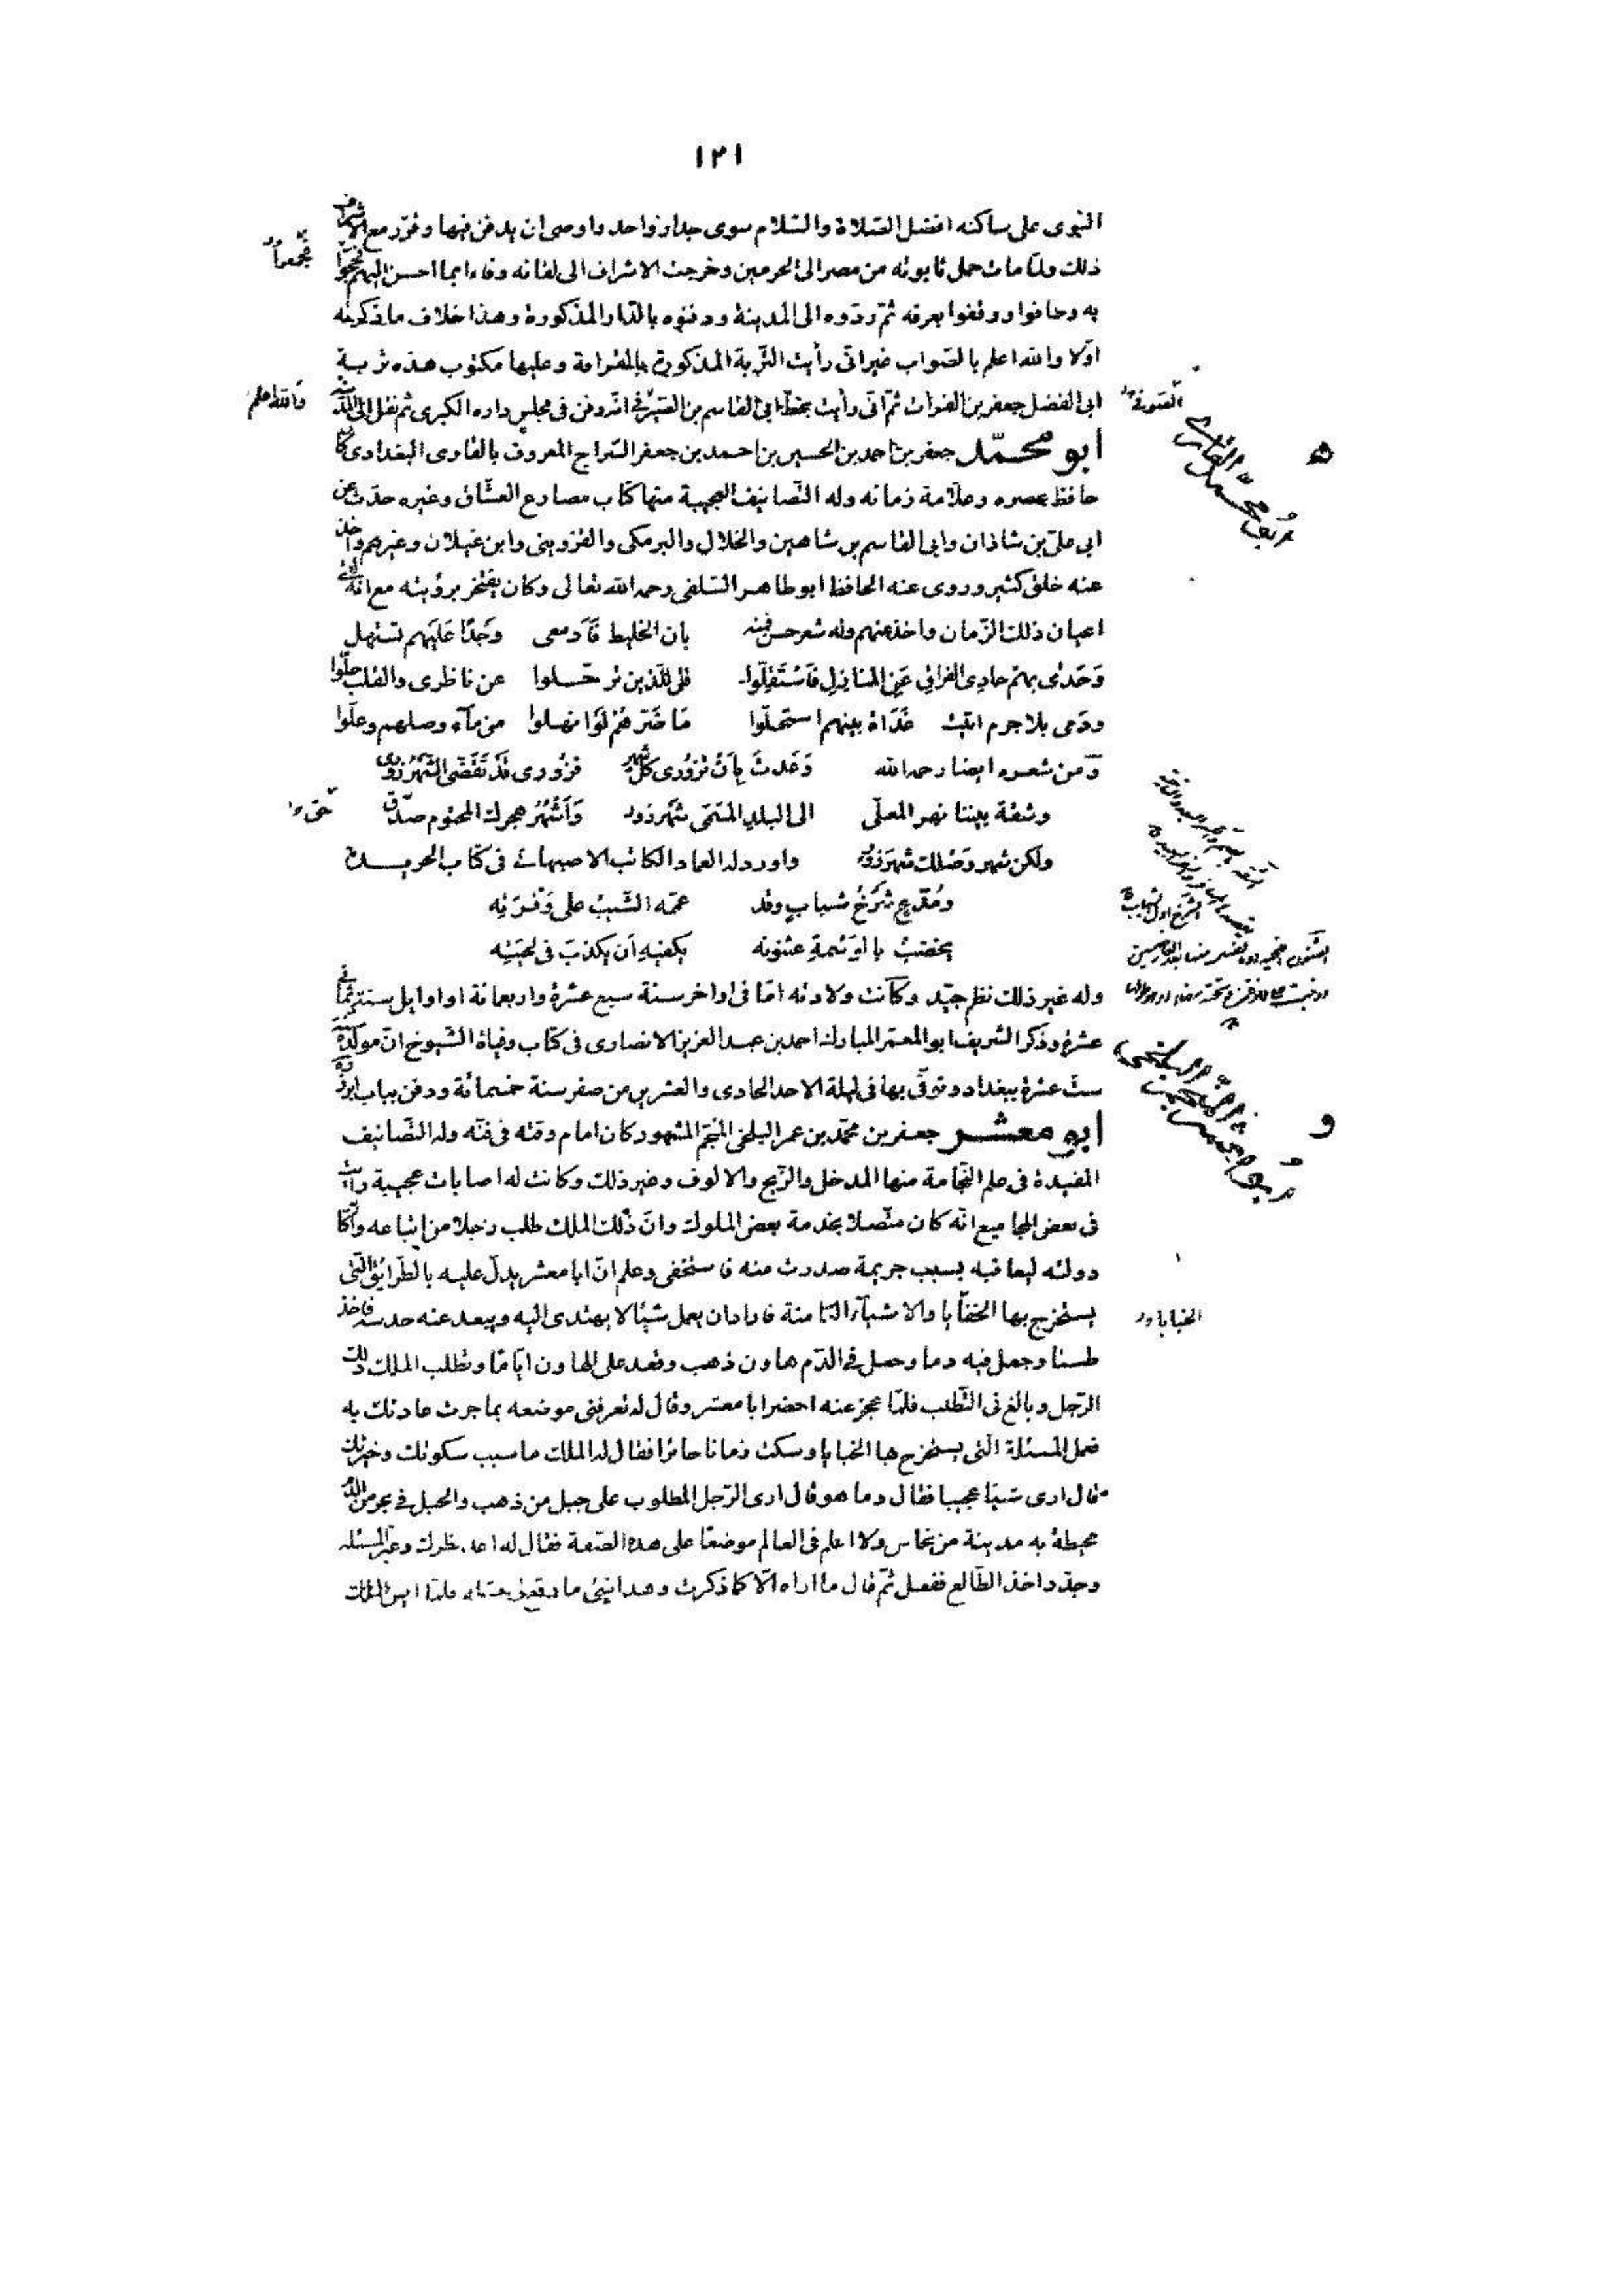 ١٢١
النبوى على ساكنه افضل الصّلاة والسّلام سوى جدار واحد واوصى ان يدفن فيها وقرّر مع الاشراف
ذلك ولمّا مات حمل تابوته من مصر الى الحرمين وخرجت الاشراف الى لقائه وفاء بما احسن اليهم فحجّوا
به وطافوا ووقفوا بعرفه ثمّ ردّوه الى المدينة ودفنوه بالدّار المذكورة وهذا خلاف ما ذكرته
اوّلا والله اعلم بالصّواب غيرانّى رأيت التّربة المذكورة بالقرافة وعليها مكتوب هذه تربة
ابى الفضل جعفر بن الفرات ثمّ انّى رأيت بخطّ ابى القاسم بن الصّيرفى انّه دفن فى مجلس داره الكبرى ثم نقل الى المدينة
والله اعلم
أبو محمّد جعفر بن احمد بن الحسين بن احمد بن جعفر السّراج المعروف بالقارى البغدادى كان
حافظ عصره وعلّامة زمانه وله التّصانيف العجيبة منها كتاب مصارع العشّاق وغيره حدّث عن
ابى علىّ بن شاذان وابى القاسم بن شاهين والخلال والبرمكى والقزوينى وابن غيلان وغيرهم واخذ
عنه خلق كثير وروى عنه الحافظ ابو طاهر السّلفى رحمه الله تعالى وكان يفتخر برؤيته مع انّه لقى
اعيان ذلك الزّمان واخذ عنهم وله شعر حسن فمنه بان الخليط فأدمعى وَجدًا عَلَيهم تستهل
وَحَدٰى بهم حادى الفراق عَنِ المنازلِ فَاسْتَقِلّوا قل للّذين ترحّلوا عن ناظرى والقلب حلّوا
ودمى بلا جرم اتيت غَدَاةَ بينهم استحلّوا مَا ضَرّهُمْ لَوْ انهلوا من مآء وصلهم وعلّوا
وَمن شعره ايضا رحمه الله وَعَدتَ بِأَنْ تزُورى كلّ شهر فزُورى قَدْ تَقَضّى الشّهْرُ زورى
وشقة بيننا نهر المعلّى الى البلدِ المسَمّى شهَرزور وَأَشْهُرُ هجرك المحتوم صدق
ولكن شهر وَصْلك شهرَ زور واورد له العماد الكاتب الاصبهانى فى كتاب الخريدة
ومُدّعٍ شَرْخُ شبابٍ وقد عمّه الشّيبُ على وَفْرَتِه
يخضبُ بالوَشمةِ عثنونه يكفيهِ أن يكذبَ فى لحيَتِه
وله غير ذلك نظم جيّد وكآنت ولادته امّا فى اواخر سنة سبع عشرة واربعمائة او اوايل سنة ثمانى
عشرة وذكر الشريف ابو المعمّر المبارك احمد بن عبد العزيز الانصارى فى كتاب وفياة الشّيوخ انّ مولده سنة
ستّ عشرة ببغداد وتوفّى بها فى ليلة الاحد الحادى والعشرين من صفر سنة خمسمائة ودفن بباب ابرز
أبو معشر جعفر بن محمّد بن عمر البلخى المنجّم المشهور كان امام وقته فى فنّه وله التّصانيف
المفيدة فى علم النّجامة منها المدخل والزّيج والالوف وغير ذلك وكانت له اصابات عجيبة رأيت
فى بعض المجاميع انّه كان متّصلا بخدمة بعض الملوك وانّ ذلك الملك طلب رجلا من اتباعه واكابر
دولته ليعاقبه بسبب جريمة صدرت منه فاستخفى وعلم انّ ابا معشر يدلّ عليه بالطّرايق الّتى
يستخرج بها الخفايا والاشيآء الكامنة فاراد ان يعمل شيئا لا يهتدى اليه ويبعد عنه حدسه فاخذ
الخبايا
طستا وجعل فيه دما وجعل فى الدّم هاون ذهب وقعد على الهاون ايّامًا وتطلب الملك ذلك
الرّجل وبالغ فى التّطلب فلمّا عجز عنه احضر ابا معشر وقال له تعرفنى موضعه بما جرت عادتك به
فعمل المسئلة الّتى يستخرج بها الخبايا وسكت زمانا حائرا فقال له الملك ما سبب سكوتك وحيرتك
فقال ارى شيئا عجيبا فقال وما هو قال ارى الرّجل المطلوب على جبل من ذهب والجبل فى بحر من الدّم
محيطة به مدينة من نحاس ولا اعلم فى العالم موضعًا على هذه الصّفة فقال له اعد نظرك وغيّر المسئله
وجدّد اخذ الطّالع ففعل ثمّ قال ما اراه الّا كما ذكرت وهذا شئ ما وقع لى مثله فلمّا ايس الملك